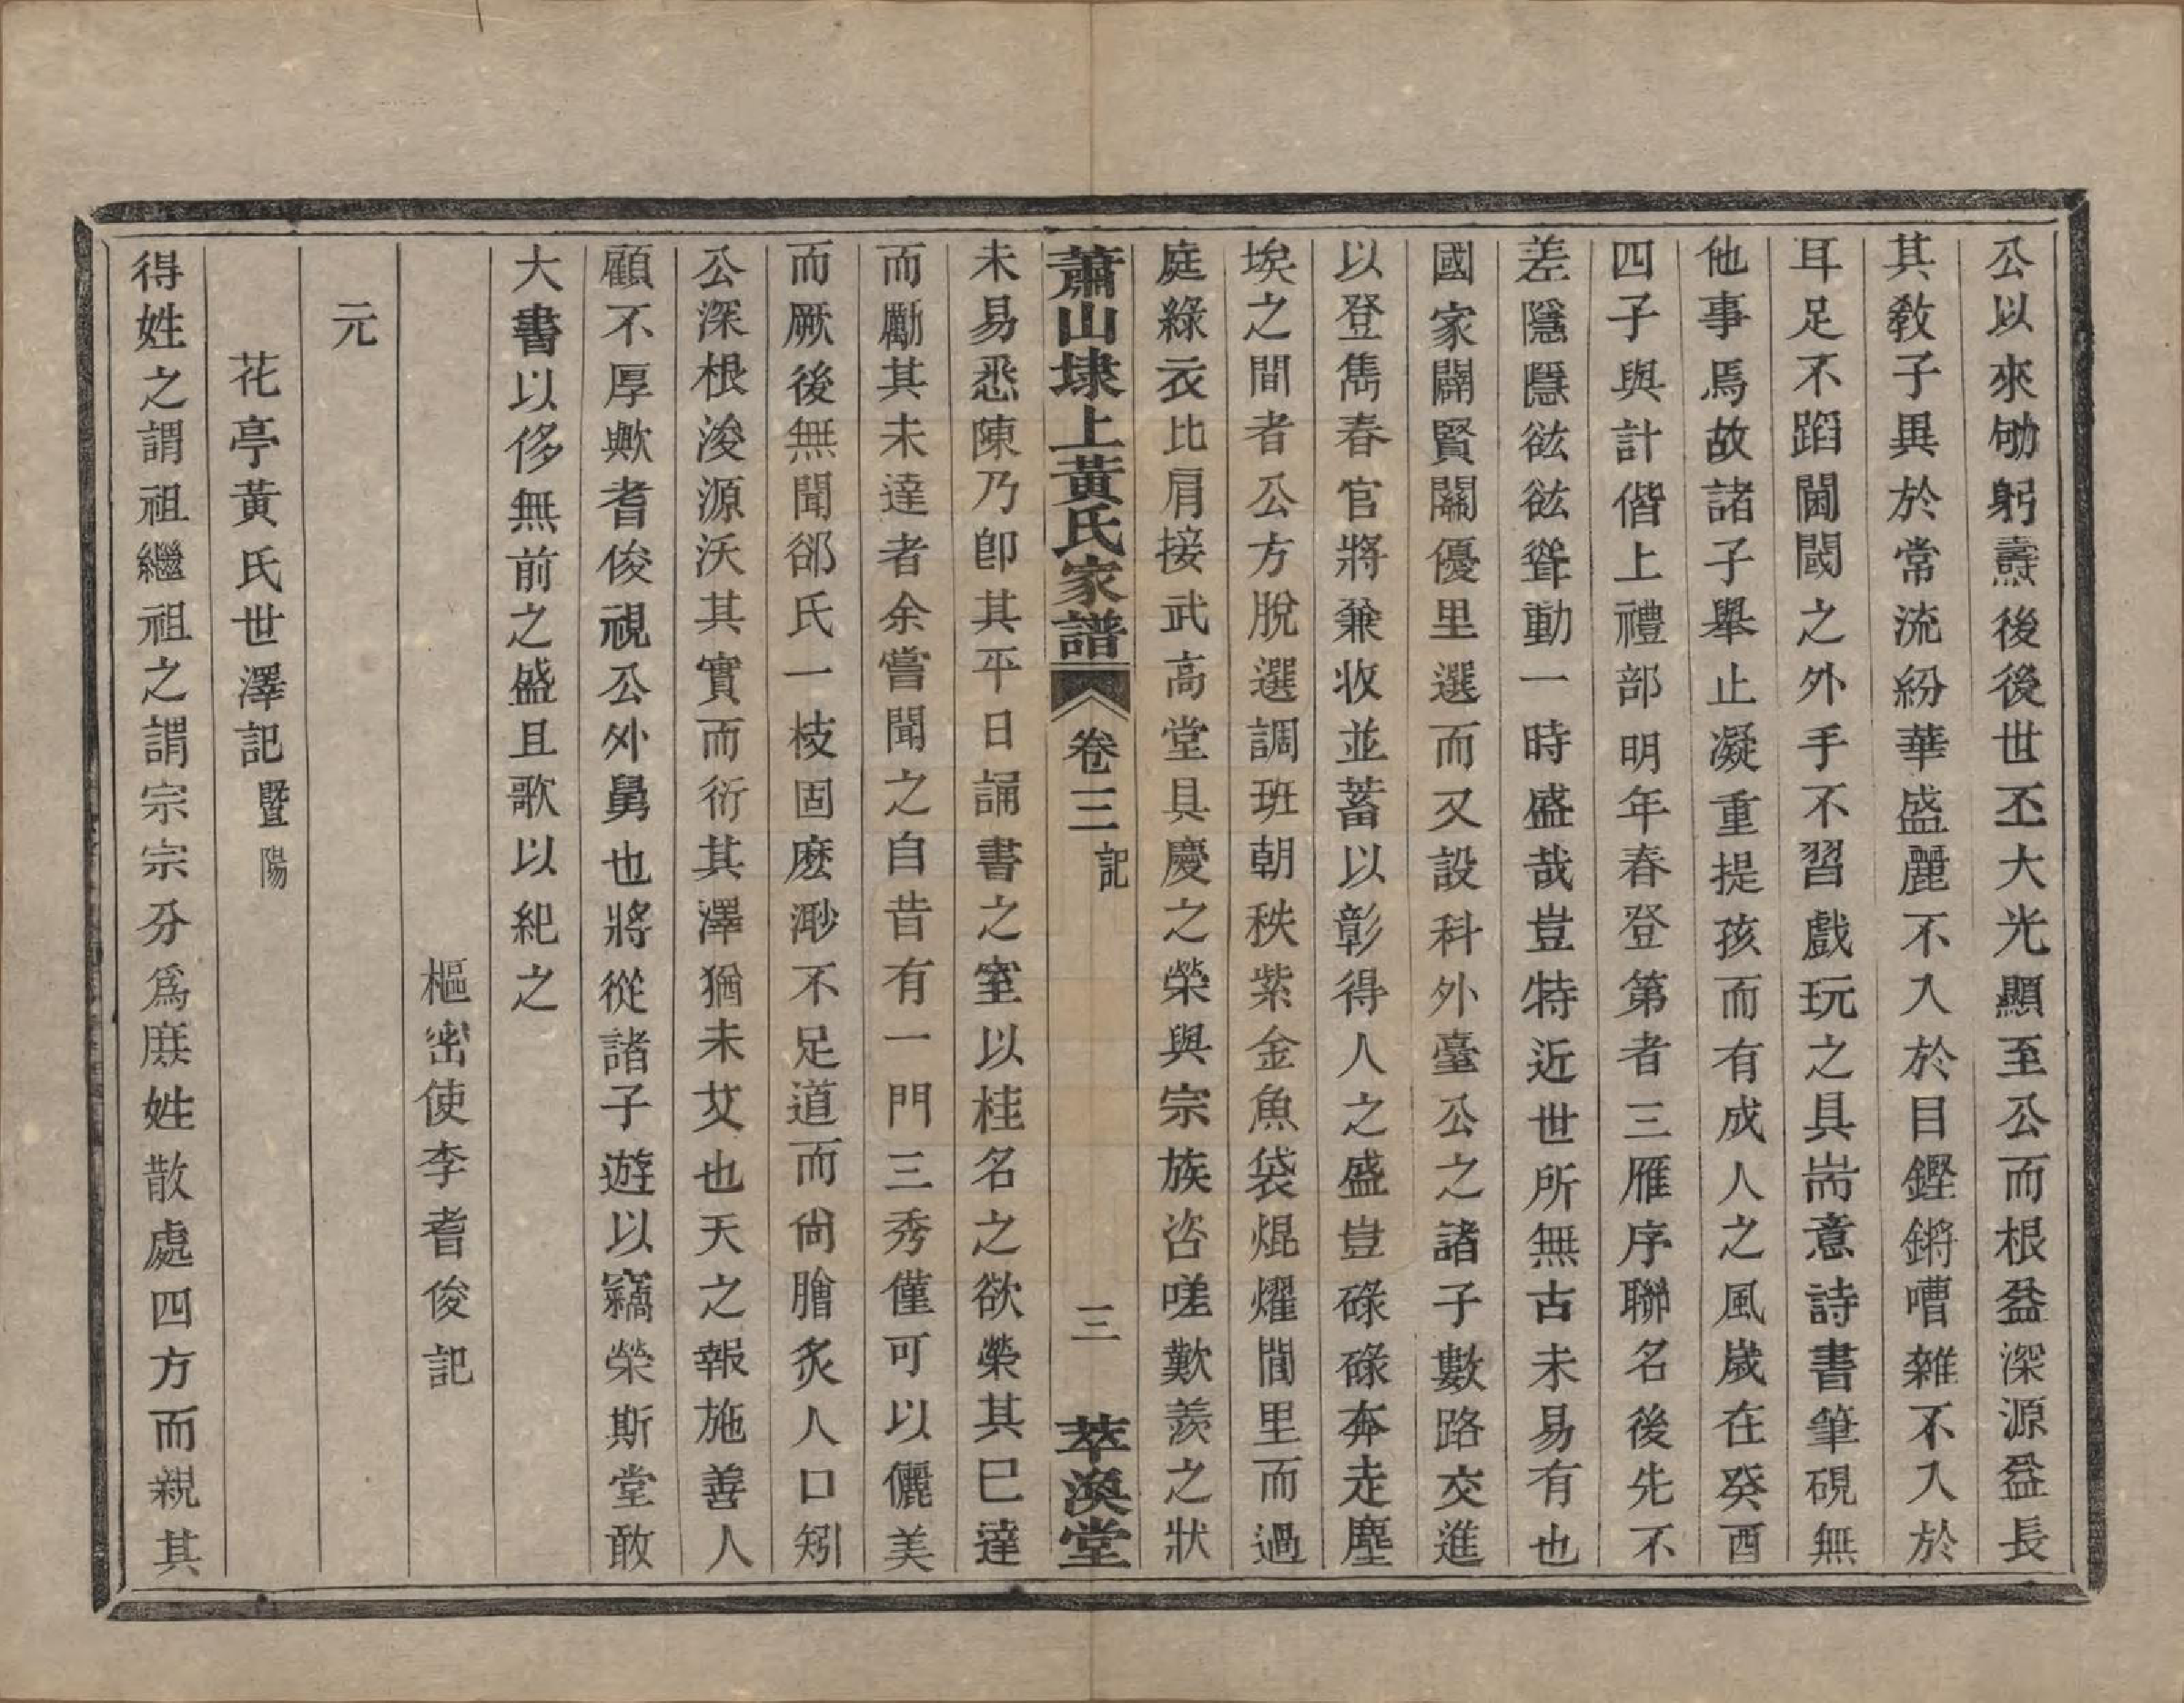 公以來劬躬燾後後世丕大光顯至公而根益深源益長
其教子異於常流紛華盛麗不入於目鏗鏘嘈雜不入於
耳足不蹈閫閾之外手不習戲玩之具耑意詩書筆硯無
他事焉故諸子舉止凝重提孩而有成人之風歲在癸酉
四子與計偕上禮部明年春登第者三雁序聯名後先不
差隱隱𧮰𧮰聳動一時盛哉豈特近世所無古未易有也
國家闢賢關優里選而又設科外臺公之諸子數路交進
以登雋春官將兼收並蓄以彰得人之盛豈碌碌奔走塵
埃之間者公方脫選調班朝秩紫金魚袋焜燿閭里而過
庭綠衣比肩接武高堂具慶之榮與宗族咨嗟歎羨之狀
蕭山埭上黃氏家譜 卷三 記 三 萃渙堂
未易悉陳乃卽其平日誦書之室以桂名之欲榮其已達
而勵其未達者余嘗聞之自昔有一門三秀僅可以儷美
而厥後無聞郤氏一枝固麽渺不足道而尙膾炙人口矧
公深根浚源沃其實而衍其澤猶未艾也天之報施善人
顧不厚歟耆俊視公外舅也將從諸子遊以竊榮斯堂敢
大書以侈無前之盛且歌以紀之
樞密使李耆俊記
元
花亭黃氏世澤記 暨陽
得姓之謂祖繼祖之謂宗宗分爲庶姓散處四方而親其